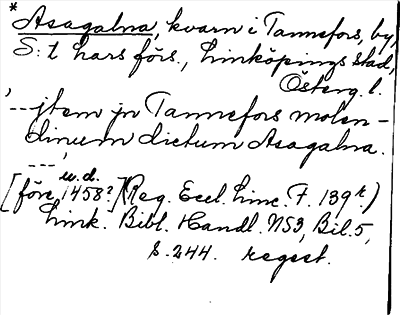 * Asagalna, kvarn i Tannefors, by,
S:t Lars förs., Linköpings stad,
Österg. l.
'---jtem jn Tannefors molen-
dinum dictum Asagalna.
---'
u.d.
[före 1458?] (Reg. Eccl. Linc. F. 139r.)
Link. Bibl. Handl. NS3, Bil. 5,
s. 244. regest.